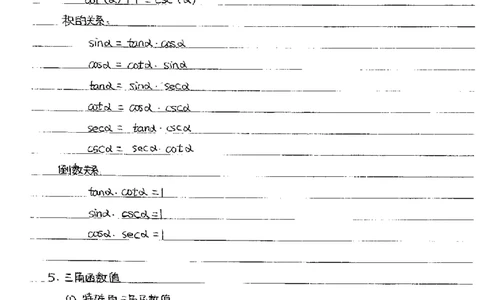 cot²(α)+1=csc²(α)
积的关系:
sinα = tanα·cosα
cosα = cotα·sinα
tanα = sinα·secα
cotα = cosα·cscα
secα = tanα·cscα
cscα = secα·cotα
倒数关系
tanα·cotα=1
sinα·cscα=1
cosα·secα=1
5. 三角函数值
(1) 特殊角三角函数值